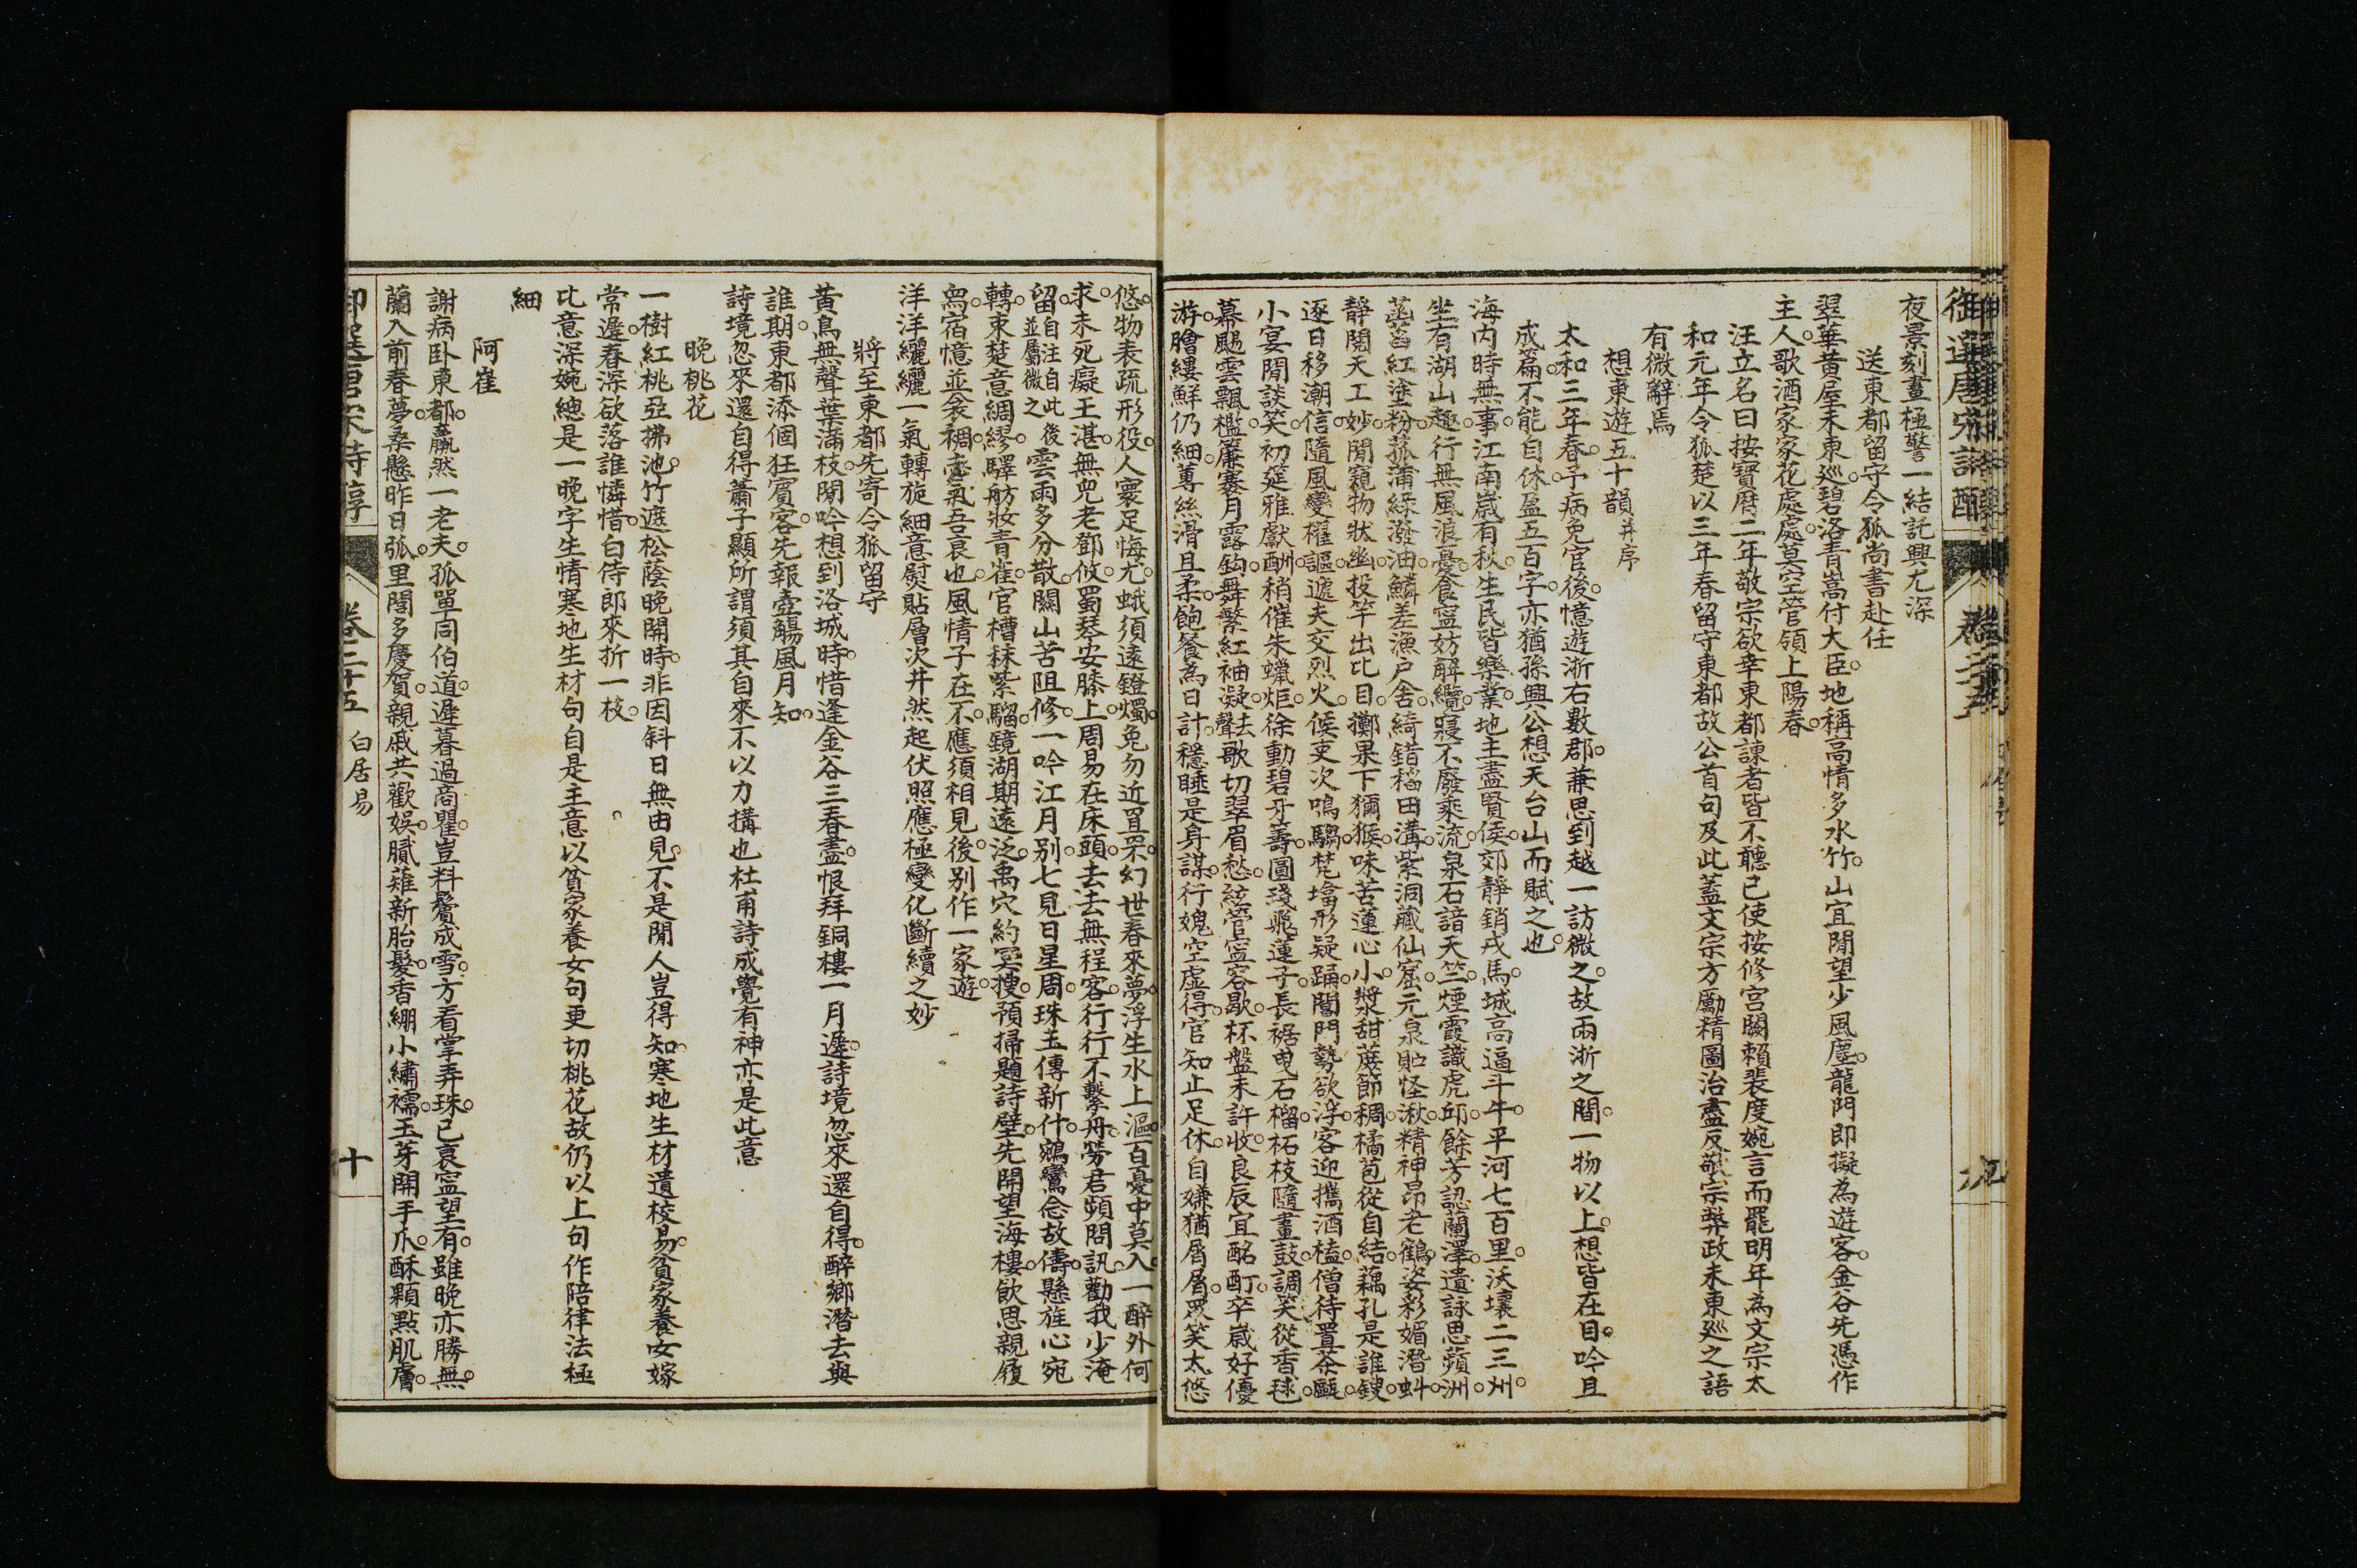 夜景刻畫極警一結託興尤深
送東都留守令狐尚書赴任
翠華黃屋未東巡碧洛青嵩付大臣地稱高情多水竹山宜閒望少風塵龍門即擬為遊客金谷先憑作
主人歌酒家家花處處莫空管領上陽春
汪立名曰按寶曆二年敬宗欲幸東都諫者皆不聽已使按修宮闕賴裴度婉言而罷明年為文宗太
和元年令狐楚以三年春留守東都故公首句及此蓋文宗方勵精圖治盡反敬宗弊政未東巡之語
有微辭焉
想東遊五十韻并序
太和三年春予病免官後憶遊浙右數郡兼思到越一訪微之故兩浙之間一物以上想皆在目吟且
成篇不能自休盈五百字亦猶孫興公想天台山而賦之也
海內時無事江南歲有秋生民皆樂業地主盡賢侯郊靜銷戎馬城高逼斗牛平河七百里沃壤二三州
坐有湖山趣行無風浪憂食寧妨解纜寢不廢乘流泉石諳天竺煙霞識虎邱餘芳認蘭澤遺詠思蘋洲
菡萏紅塗粉菰蒲綠潑油鱗差漁戶舍綺錯稻田溝紫洞藏仙窟元泉貯怪湫精神昂老鶴姿彩媚潛虯
靜閱天工妙閒窺物狀幽投竿出比目擲果下獼猴味苦蓮心小漿甜蔗節稠橘苞從自結藕孔是誰鎪
逐日移潮信隨風變櫂謳遞夫交烈火候吏次鳴騶梵塔形疑踊閶門勢欲浮客迎攜酒榼僧待置茶甌
小宴閒談笑初筵雅獻酬稍催朱蠟炬徐動碧牙籌圓琖飛蓮子長裾曳石榴柘枝隨畫鼓調笑從香毬
幕颺雲飄檻簾褰月露鈎舞繁紅袖凝法歌切翠眉愁絃管寧容歇杯盤未許收良辰宜酩酊卒歲好優
游膾縷鮮仍細蓴絲滑且柔飽餐為日計穩睡是身謀行媿空虛得官知止足休自嫌猶屑屑眾笑太悠
悠物表疏形役人寰足悔尤蛾須遠鐙燭兔勿近罝罘幻世春來夢浮生水上漚百憂中莫入一醉外何
求未死癡王湛無兒老鄧攸蜀琴安膝上周易在床頭去去無程客行行不繫舟勞君頻問訊勸我少淹
留自注自此後並屬微之雲雨多分散關山苦阻修一吟江月別七見日星周珠玉傳新什鵷鸞念故儔懸旌心宛
轉束楚意綢繆驛舫妝青雀官槽秣紫騮鏡湖期遠泛禹穴約冥搜預掃題詩壁先開望海樓飲思親履
舄宿憶並衾裯志氣吾衰也風情子在不應須相見後別作一家遊
洋洋纚纚一氣轉旋細意熨貼層次井然起伏照應極變化斷續之妙
將至東都先寄令狐留守
黃鳥無聲葉滿枝閒吟想到洛城時惜逢金谷三春盡恨拜銅樓一月遲詩境忽來還自得醉鄉潛去與
誰期東都添個狂賓客先報壺觴風月知
詩境忽來還自得蕭子顯所謂須其自來不以力搆也杜甫詩成覺有神亦是此意
晚桃花
一樹紅桃亞拂池竹遮松蔭晚開時非因斜日無由見不是閒人豈得知寒地生材遺校易貧家養女嫁
常遲春深欲落誰憐惜白侍郎來折一枝
比意深婉總是一晚字生情寒地生材句自是主意以貧家養女句更切桃花故仍以上句作陪律法極
細
阿崔
謝病卧東都羸然一老夫孤單同伯道遲暮過商瞿豈料鬢成雪方看掌弄珠已衰寧望有雖晚亦勝無
蘭入前春夢桑懸昨日弧里閭多慶賀親戚共歡娛膩薙新胎髮香繃小繡襦玉芽開手爪酥顆點肌膚
御選唐宋詩醇
卷二十五 白居易
十